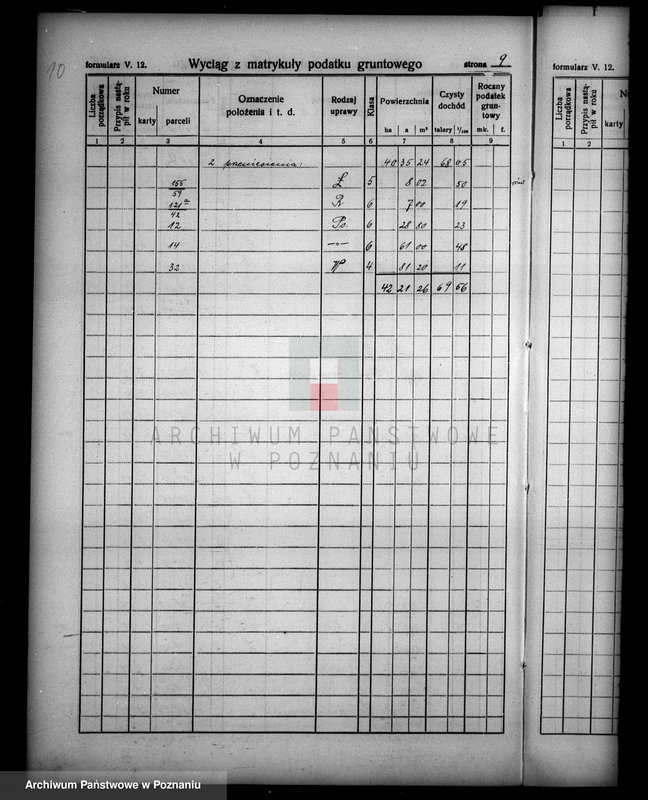 10
formularz V. 12. Wyciąg z matrykuły podatku gruntowego strona 9
Liczba porządkowa Przypis nastąpił w roku Numer karty parceli Oznaczenie położenia i t. d. Rodzaj uprawy Klasa Powierzchnia ha a m² Czysty dochód talary 1/100 Rocany podatek gruntowy mk. f.
1 2 3 4 5 6 7 8 9
z przeniesienia: 40 35 24 68 05
155/59 Ł 5 8 02 50
121a/42 R 6 7 00 19
12 Ps. 6 28 80 23
14 —"— 6 61 00 48
32 W 4 81 20 11
42 21 26 69 56
ARCHIWUM PAŃSTWOWE
W POZNANIU
formularz V. 12.
Liczba porządkowa Przypis nastąpił w roku karty
1 2
Archiwum Państwowe w Poznaniu